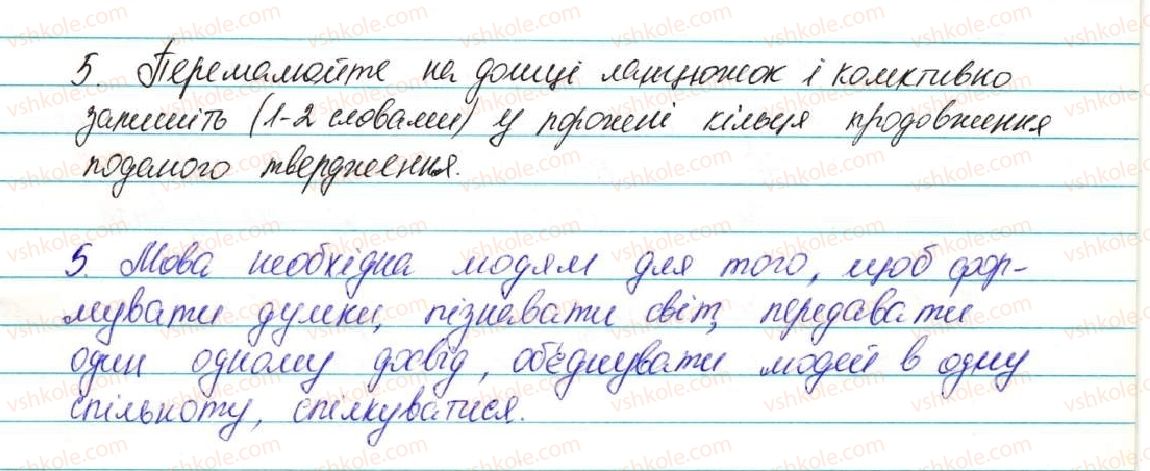 5. Перемалюйте на дошці ланцюжок і колективно
запишіть (1-2 словами) у порожні кільця продовження
поданого твердження.
5. Мова необхідна людям для того, щоб фор-
мувати думки, пізнавати світ, передавати
один одному досвід, об'єднувати людей в одну
спільноту, спілкуватися.